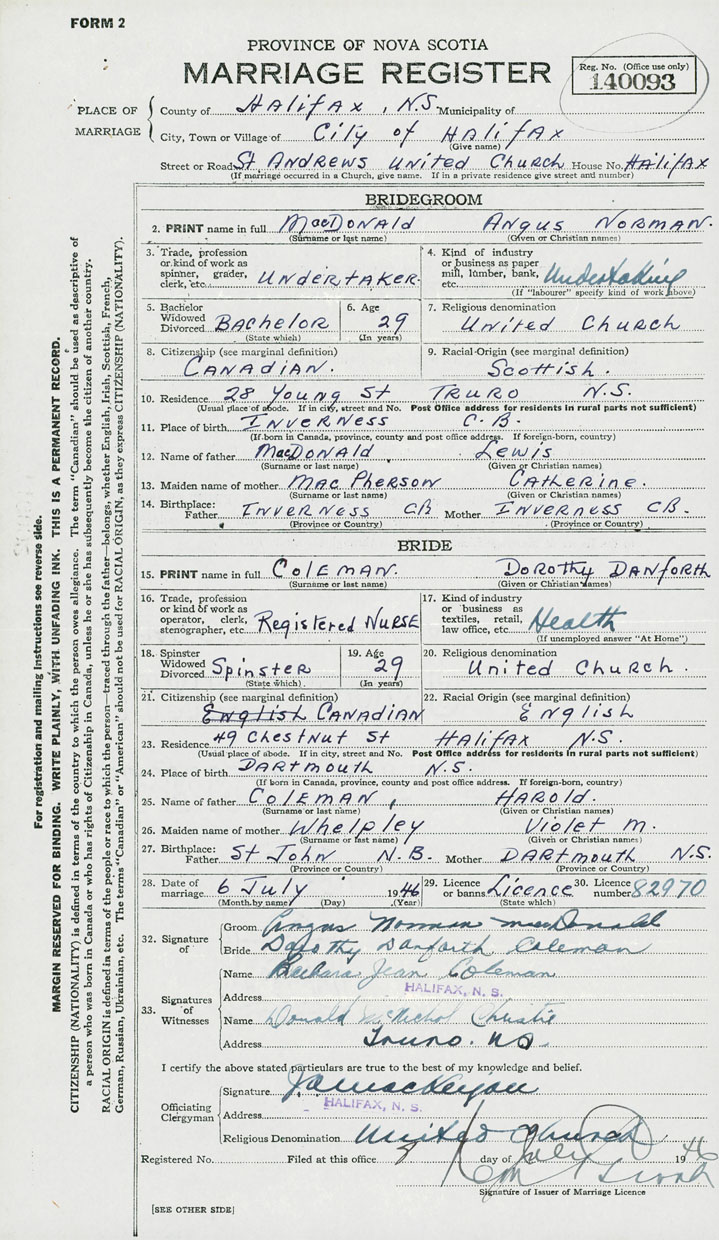 FORM 2
PROVINCE OF NOVA SCOTIA
MARRIAGE REGISTER
Reg. No. (Office use only)
140093
PLACE OF MARRIAGE
County of Halifax, N.S. Municipality of
City, Town or Village of City of Halifax
(Give name)
Street or Road St Andrews United Church House No. Halifax
(If marriage occurred in a Church, give name. If in a private residence give street and number)
BRIDEGROOM
2. PRINT name in full MacDonald Angus Norman.
(Surname or last name) (Given or Christian names)
3. Trade, profession or kind of work as spinner, grader, clerk, etc. Undertaker.
4. Kind of industry or business as paper mill, lumber, bank, etc. Undertaking
(If "labourer" specify kind of work above)
5. Bachelor Widowed Divorced Bachelor
(State which)
6. Age 29
(In years)
7. Religious denomination
United Church
8. Citizenship (see marginal definition)
Canadian.
9. Racial Origin (see marginal definition)
Scottish.
10. Residence 28 Young St Truro N.S.
(Usual place of abode. If in city, street and No. Post Office address for residents in rural parts not sufficient)
11. Place of birth Inverness C.B.
(If born in Canada, province, county and post office address. If foreign-born, country)
12. Name of father MacDonald Lewis
(Surname or last name) (Given or Christian names)
13. Maiden name of mother MacPherson Catherine.
(Surname or last name) (Given or Christian names)
14. Birthplace: Father Inverness CB Mother Inverness CB.
(Province or Country) (Province or Country)
BRIDE
15. PRINT name in full Coleman. Dorothy Danforth
(Surname or last name) (Given or Christian names)
16. Trade, profession or kind of work as operator, clerk, stenographer, etc. Registered Nurse
17. Kind of industry or business as textiles, retail, law office, etc. Health
(If unemployed answer "At Home")
18. Spinster Widowed Divorced Spinster
(State which)
19. Age 29
(In years)
20. Religious denomination
United Church.
21. Citizenship (see marginal definition)
English Canadian
22. Racial Origin (see marginal definition)
English
23. Residence 49 Chestnut St Halifax N.S.
(Usual place of abode. If in city, street and No. Post Office address for residents in rural parts not sufficient)
24. Place of birth Dartmouth N.S.
(If born in Canada, province, county and post office address. If foreign-born, country)
25. Name of father Coleman, Harold.
(Surname or last name) (Given or Christian names)
26. Maiden name of mother Whelpley Violet M.
(Surname or last name) (Given or Christian names)
27. Birthplace: Father St John N.B. Mother Dartmouth N.S.
(Province or Country) (Province or Country)
28. Date of marriage 6 July 1946
(Month by name) (Day) (Year)
29. Licence or banns Licence
(State which)
30. Licence number 82970
32. Signature of
Groom Angus Norman MacDonald
Bride Dorothy Danforth Coleman
33. Signatures of Witnesses
Name Barbara Jean Coleman
Address HALIFAX, N. S.
Name Donald McNichol Christie
Address Truro. NS.
I certify the above stated particulars are true to the best of my knowledge and belief.
Officiating Clergyman
Signature
Address HALIFAX, N. S.
Religious Denomination United Church
Registered No. Filed at this office 9 day of July 1946
Signature of Issuer of Marriage Licence
[SEE OTHER SIDE]
For registration and mailing instructions see reverse side.
MARGIN RESERVED FOR BINDING. WRITE PLAINLY, WITH UNFADING INK. THIS IS A PERMANENT RECORD.
CITIZENSHIP (NATIONALITY) is defined in terms of the country to which the person owes allegiance. The term "Canadian" should be used as descriptive of
a person who was born in Canada or who has rights of Citizenship in Canada, unless he or she has subsequently become the citizen of another country.
RACIAL ORIGIN is defined in terms of the people or race to which the person—traced through the father—belongs, whether English, Irish, Scottish, French,
German, Russian, Ukrainian, etc. The terms "Canadian" or "American" should not be used for RACIAL ORIGIN, as they express CITIZENSHIP (NATIONALITY).